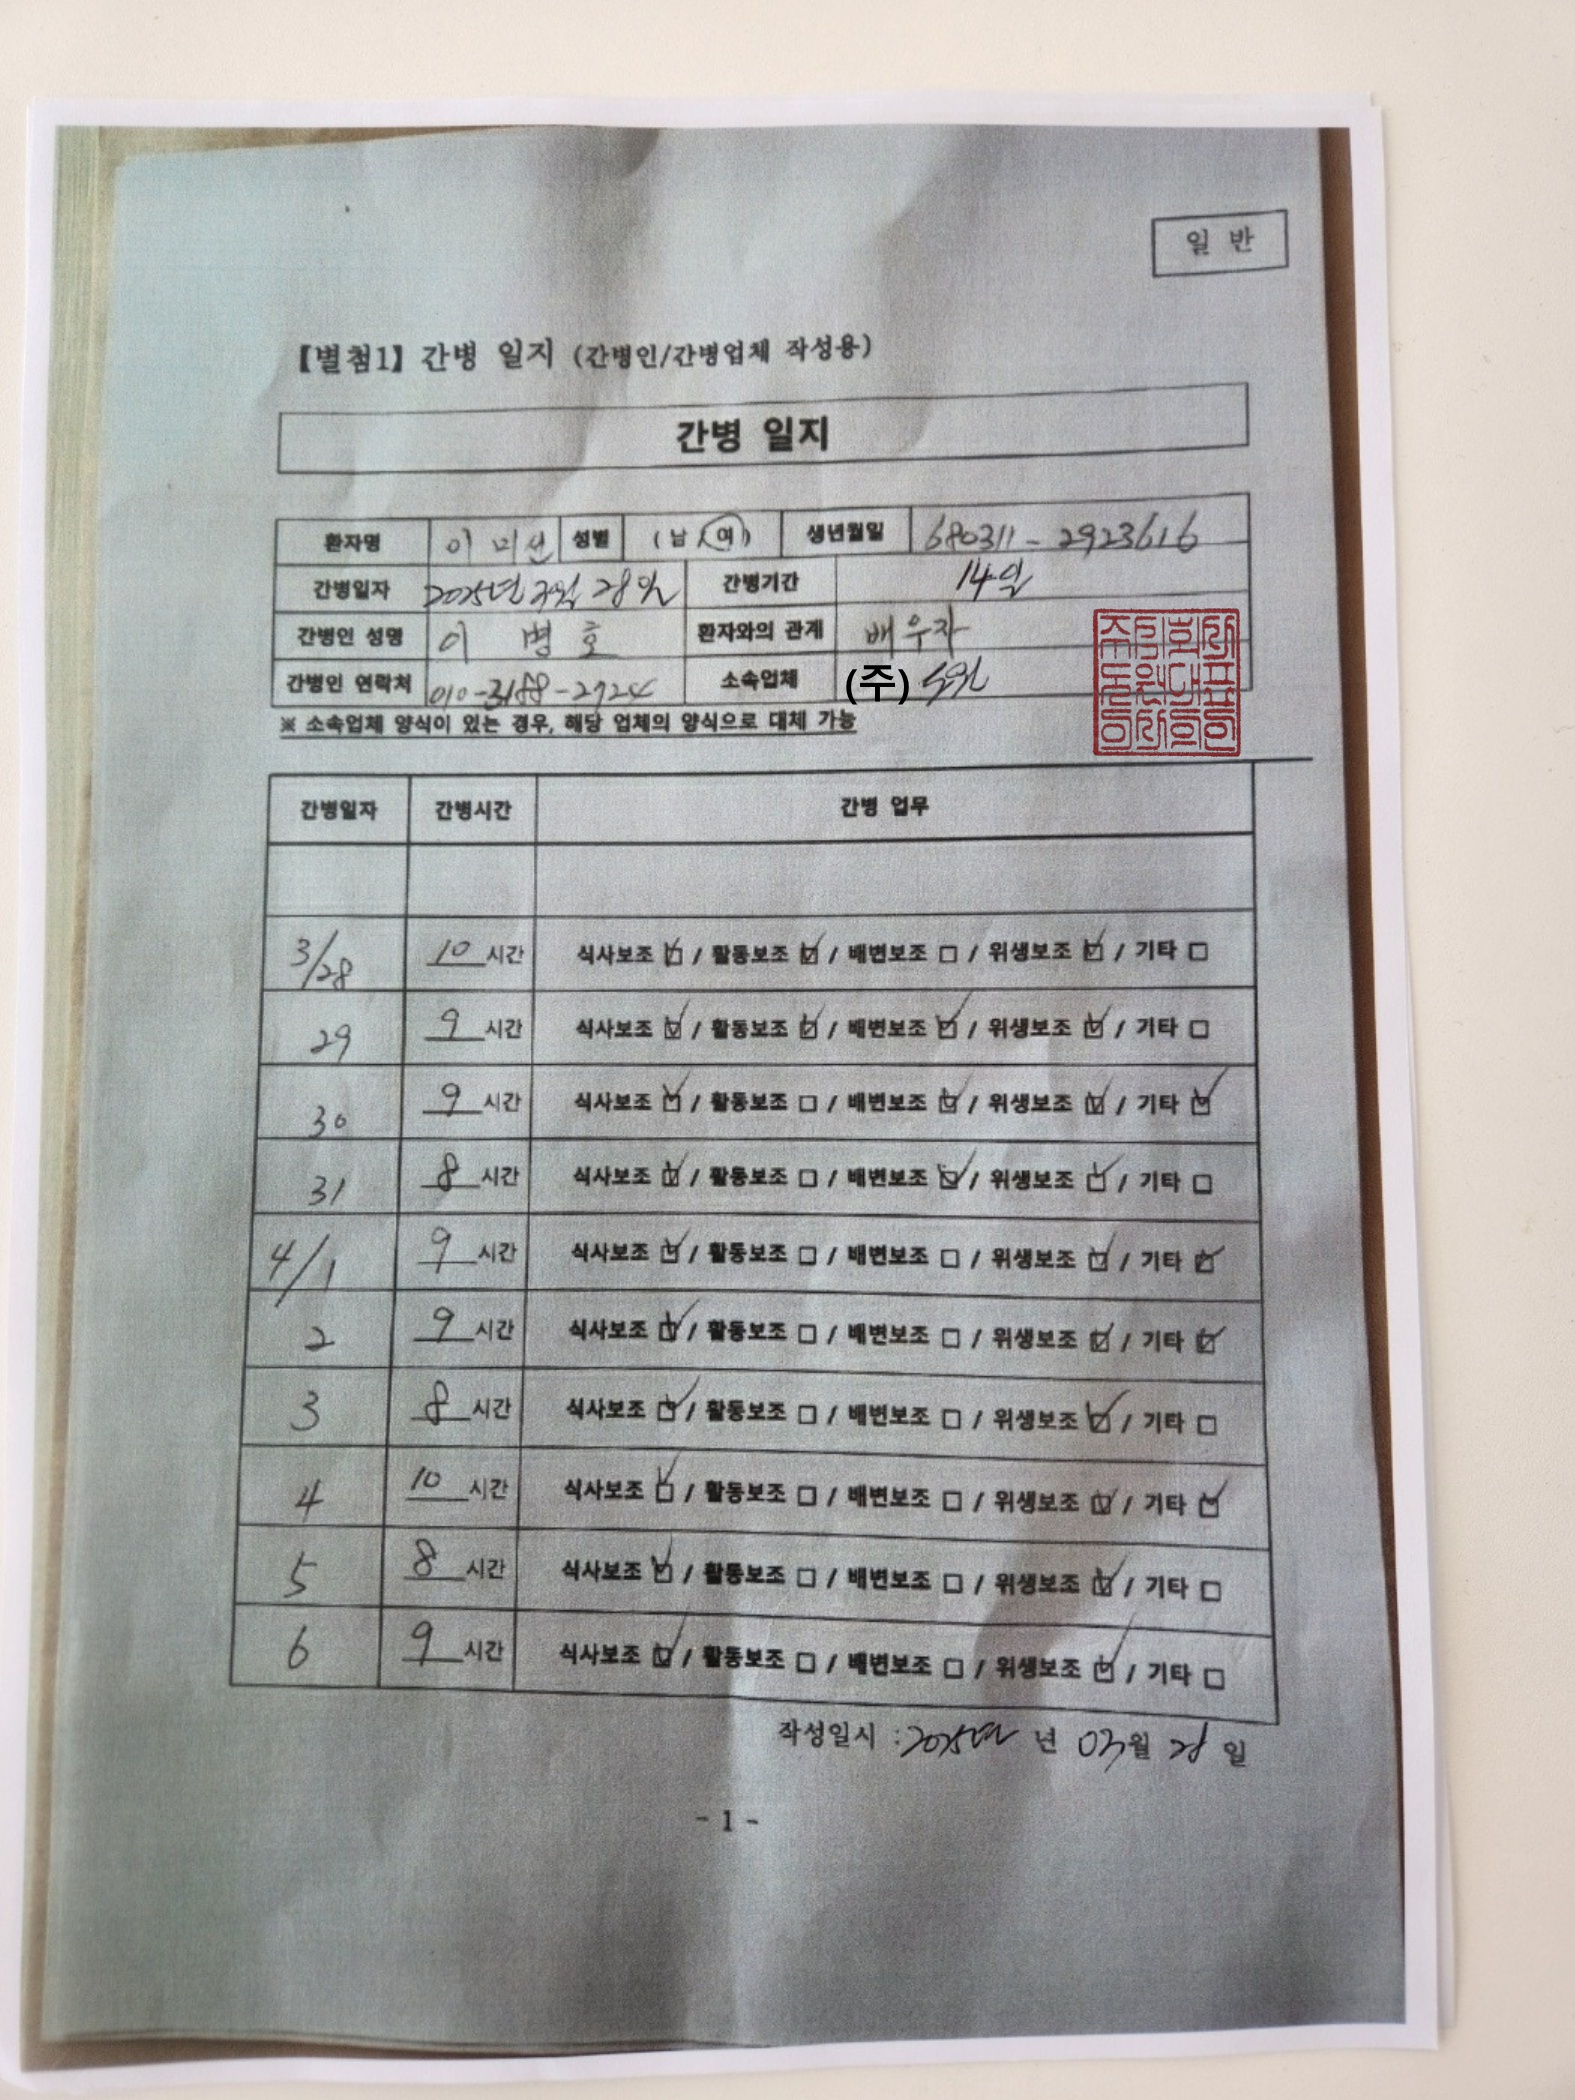 일 반
【별첨1】 간병 일지 (간병인/간병업체 작성용)
간병 일지
환자명 이미선 성별 (남/여) 생년월일 680311-2923616
간병일자 2025년 3월 28일 간병기간 14일
간병인 성명 이병호 환자와의 관계 배우자
간병인 연락처 010-3188-2924 소속업체 (주)
※ 소속업체 양식이 있는 경우, 해당 업체의 양식으로 대체 가능
간병일자 간병시간 간병 업무
3/28 10 시간 식사보조 ☑ / 활동보조 ☑ / 배변보조 □ / 위생보조 ☑ / 기타 □
29 9 시간 식사보조 ☑ / 활동보조 ☑ / 배변보조 ☑ / 위생보조 ☑ / 기타 □
30 9 시간 식사보조 ☑ / 활동보조 □ / 배변보조 ☑ / 위생보조 ☑ / 기타 ☑
31 8 시간 식사보조 ☑ / 활동보조 □ / 배변보조 ☑ / 위생보조 ☑ / 기타 □
4/1 9 시간 식사보조 ☑ / 활동보조 □ / 배변보조 □ / 위생보조 ☑ / 기타 ☑
2 9 시간 식사보조 ☑ / 활동보조 □ / 배변보조 □ / 위생보조 ☑ / 기타 ☑
3 8 시간 식사보조 ☑ / 활동보조 □ / 배변보조 □ / 위생보조 ☑ / 기타 □
4 10 시간 식사보조 ☑ / 활동보조 □ / 배변보조 □ / 위생보조 ☑ / 기타 ☑
5 8 시간 식사보조 ☑ / 활동보조 □ / 배변보조 □ / 위생보조 ☑ / 기타 □
6 9 시간 식사보조 ☑ / 활동보조 □ / 배변보조 □ / 위생보조 ☑ / 기타 □
작성일시 : 2025년 년 03월 28 일
- 1 -